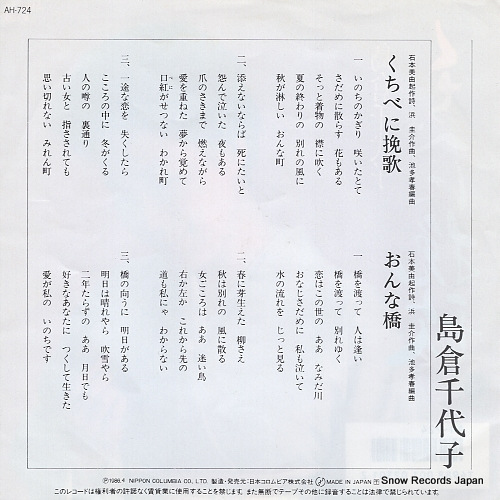 AH-724
島倉千代子
くちべに挽歌
石本美由起作詩、浜 圭介作曲、池多孝春編曲
一 いのちのかぎり 咲いたとて
さだめに散らす 花もある
そっと着物の 襟に吹く
夏の終わりの 別れの風に
秋が淋しい おんな町
二、添えないならば 死にたいと
怨んで泣いた 夜もある
爪のさきまで 燃えながら
愛を重ねた 夢から覚めて
口紅がせつない わかれ町
べに
三、一途な恋を 失くしたら
こころの中に 冬がくる
人の噂の 裏通り
古い女と 指さされても
思い切れない みれん町
おんな橋
石本美由起作詩、浜 圭介作曲、池多孝春編曲
一 橋を渡って 人は逢い
橋を渡って 別れゆく
恋はこの世の ああ なみだ川
おなじさだめに 私も泣いて
水の流れを じっと見る
二、春に芽生えた 柳さえ
秋は別れの 風に散る
女ごころは ああ 迷い鳥
右か左か これから先の
道も私にゃ わからない
三、橋の向うに 明日がある
明日は晴れやら 吹雪やら
二年たらずの ああ 月日でも
好きなあなたに つくして生きた
愛が私の いのちです
Ⓟ1986.4 NIPPON COLUMBIA CO., LTD. 製造・発売元/日本コロムビア株式会社 MADE IN JAPAN
このレコードは権利者の許諾なく賃貸業に使用することを禁じます。また無断でテープその他に録音することは法律で禁じられています。
Snow Records Japan